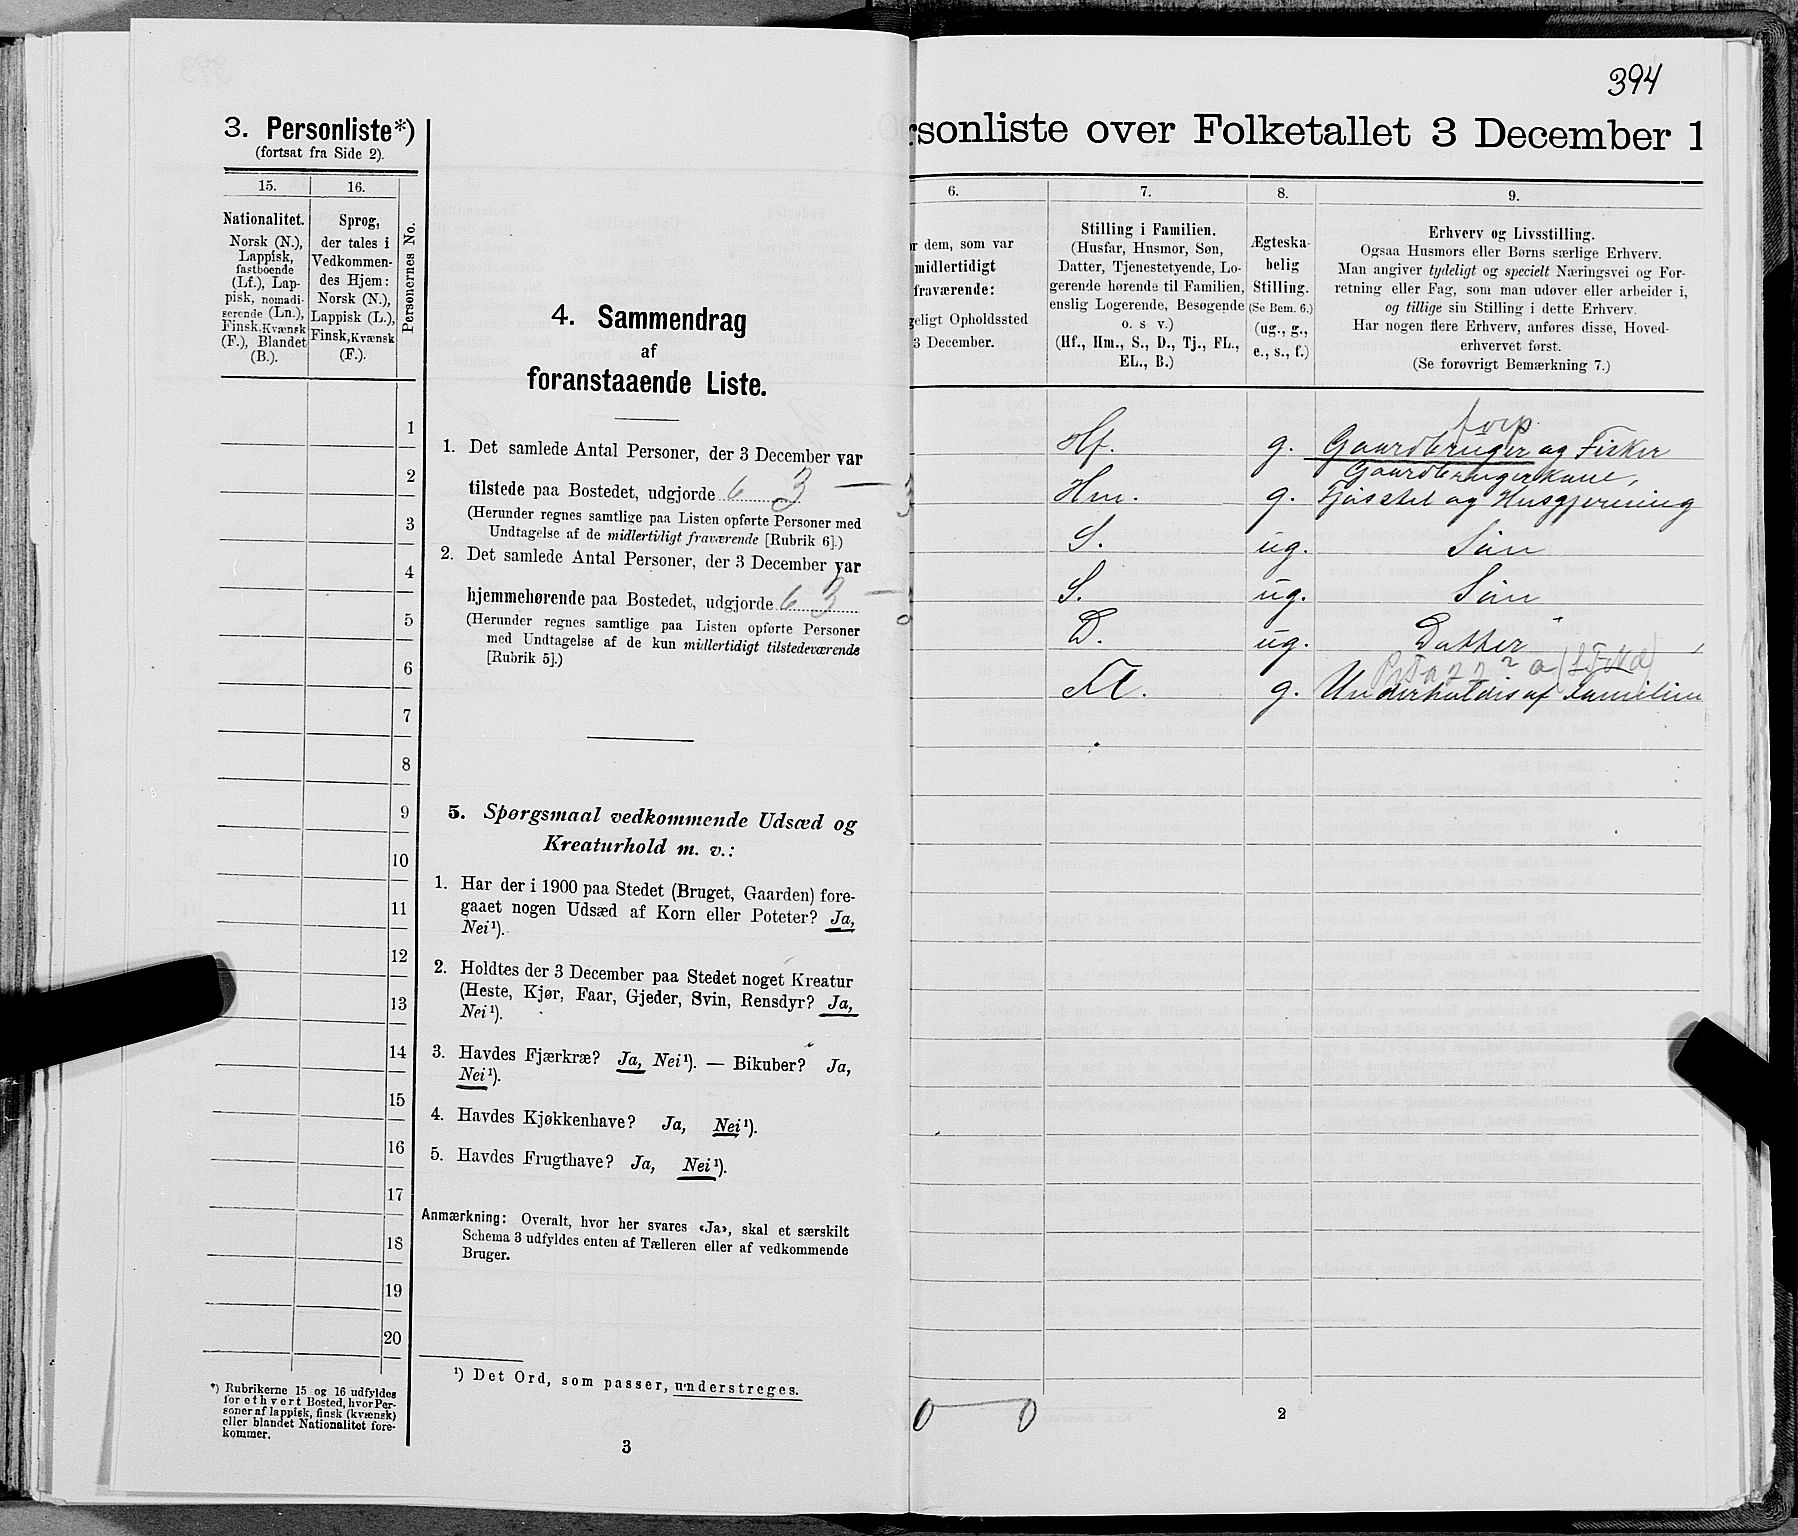 3. Personliste*)
(fortsat fra Side 2).
15.
16.
Nationalitet.
Norsk (N.),
Lappisk,
fastboende
(Lf.), Lap-
pisk, nomadi-
serende (Ln.),
Finsk, Kvænsk
(F.), Blandet
(B.).
Sprog,
der tales i
Vedkommen-
des Hjem:
Norsk (N.),
Lappisk (L.),
Finsk, Kvænsk
(F.).
Personernes No.
1
2
3
4
5
6
7
8
9
10
11
12
13
14
15
16
17
18
19
20
*) Rubrikerne 15 og 16 udfyldes
for ethvert Bosted, hvor Per-
soner af lappisk, finsk (kvænsk)
eller blandet Nationalitet fore-
kommer.
4. Sammendrag
af
foranstaaende Liste.
1. Det samlede Antal Personer, der 3 December var
tilstede paa Bostedet, udgjorde 6 3 —
(Herunder regnes samtlige paa Listen opførte Personer med
Undtagelse af de midlertidigt fraværende [Rubrik 6].)
2. Det samlede Antal Personer, der 3 December var
hjemmehørende paa Bostedet, udgjorde 6 3 —
(Herunder regnes samtlige paa Listen opførte Personer
med Undtagelse af de kun midlertidigt tilstedeværende
[Rubrik 5].)
5. Spørgsmaal vedkommende Udsæd og
Kreaturhold m. v.:
1. Har der i 1900 paa Stedet (Bruget, Gaarden) fore-
gaaet nogen Udsæd af Korn eller Poteter? Ja,
Nei ¹).
2. Holdtes der 3 December paa Stedet noget Kreatur
(Heste, Kjør, Faar, Gjeder, Svin, Rensdyr? Ja,
Nei ¹).
3. Havdes Fjærkræ? Ja, Nei ¹). — Bikuber? Ja,
Nei ¹).
4. Havdes Kjøkkenhave? Ja, Nei ¹).
5. Havdes Frugthave? Ja, Nei ¹).
Anmærkning: Overalt, hvor her svares «Ja», skal et særskilt
Schema 3 udfyldes enten af Tælleren eller af vedkommende
Bruger.
¹) Det Ord, som passer, understreges.
3
394
rsonliste over Folketallet 3 December 1
6.
7.
8.
9.
r dem, som var
midlertidigt
fraværende:
geligt Opholdssted
3 December.
Stilling i Familien.
(Husfar, Husmor, Søn,
Datter, Tjenestetyende, Lo-
gerende hørende til Familien,
enslig Logerende, Besøgende
o. s v.)
(Hf., Hm., S., D., Tj., FL.,
EL., B.)
Ægteska-
belig
Stilling.
(Se Bem. 6.)
(ug., g.,
e., s., f.)
Erhverv og Livsstilling.
Ogsaa Husmors eller Børns særlige Erhverv.
Man angiver tydeligt og specielt Næringsvei og For-
retning eller Fag, som man udøver eller arbeider i,
og tillige sin Stilling i dette Erhverv.
Har nogen flere Erhverv, anføres disse, Hoved-
erhvervet først.
(Se forøvrigt Bemærkning 7.)
forp.
Hf. g. Gaardbruger og Fisker
Gaardbrugerkone,
Hm. g. Fjøsstel og Husgjerning
S. ug. Søn
S. ug. Søn
D. ug. Datter
Fl. g. Underholdes af Familien
0 — 0
2